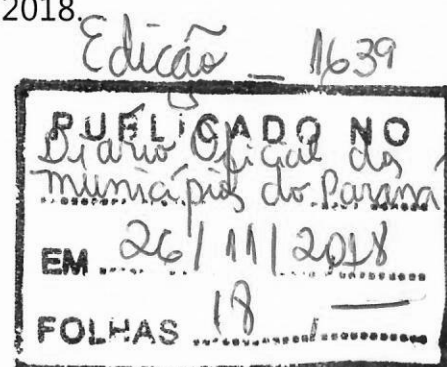 2018.
Edição - 1639
PUBLICADO NO
Diário Oficial dos
Municípios do Paraná
EM 26/11/2018
FOLHAS 18 / —